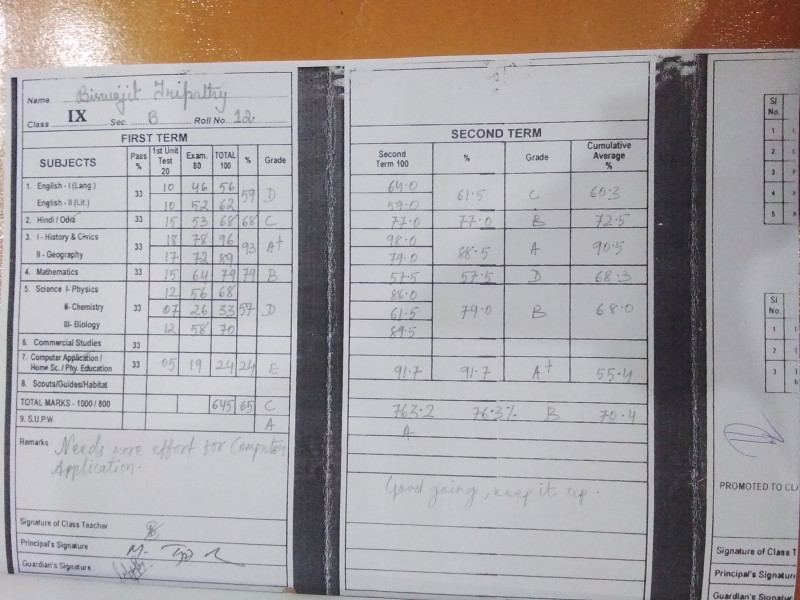 Name Biswajit Tripathy
Class IX Sec. B Roll No. 12.
FIRST TERM
SUBJECTS Pass % 1st Unit Test 20 Exam. 80 TOTAL 100 % Grade
1. English - I (Lang.) 33 10 46 56 59 D
English - II (Lit.) 10 52 62
2. Hindi / Odia 33 15 53 68 68 C
3. I - History & Civics 33 18 78 96 93 A+
II - Geography 17 72 89
4. Mathematics 33 15 64 79 79 B
5. Science I- Physics 33 12 56 68 57 D
II- Chemistry 07 26 33
III- Biology 12 58 70
6. Commercial Studies 33
7. Computer Application / Home Sc. / Phy. Education 33 05 19 24 24 E
8. Scouts/Guides/Habitat
TOTAL MARKS - 1000 / 800 645 65 C
9. S.U.P.W. A
Remarks : Needs more effort for Computer
Application.
Signature of Class Teacher
Principal's Signature
Guardian's Signature
SECOND TERM
Second Term 100 % Grade Cumulative Average %
64.0 61.5 C 60.3
59.0
77.0 77.0 B 72.5
98.0 88.5 A 90.5
79.0
57.5 57.5 D 68.3
86.0 79.0 B 68.0
61.5
89.5
91.7 91.7 A+ 55.4
763.2 76.3% B 70.4
A
Good going, keep it up.
Sl No.
1
2
3
4
5
Sl No.
1
2
3
PROMOTED TO CL
Signature of Class T
Principal's Signatur
Guardian's Signatur